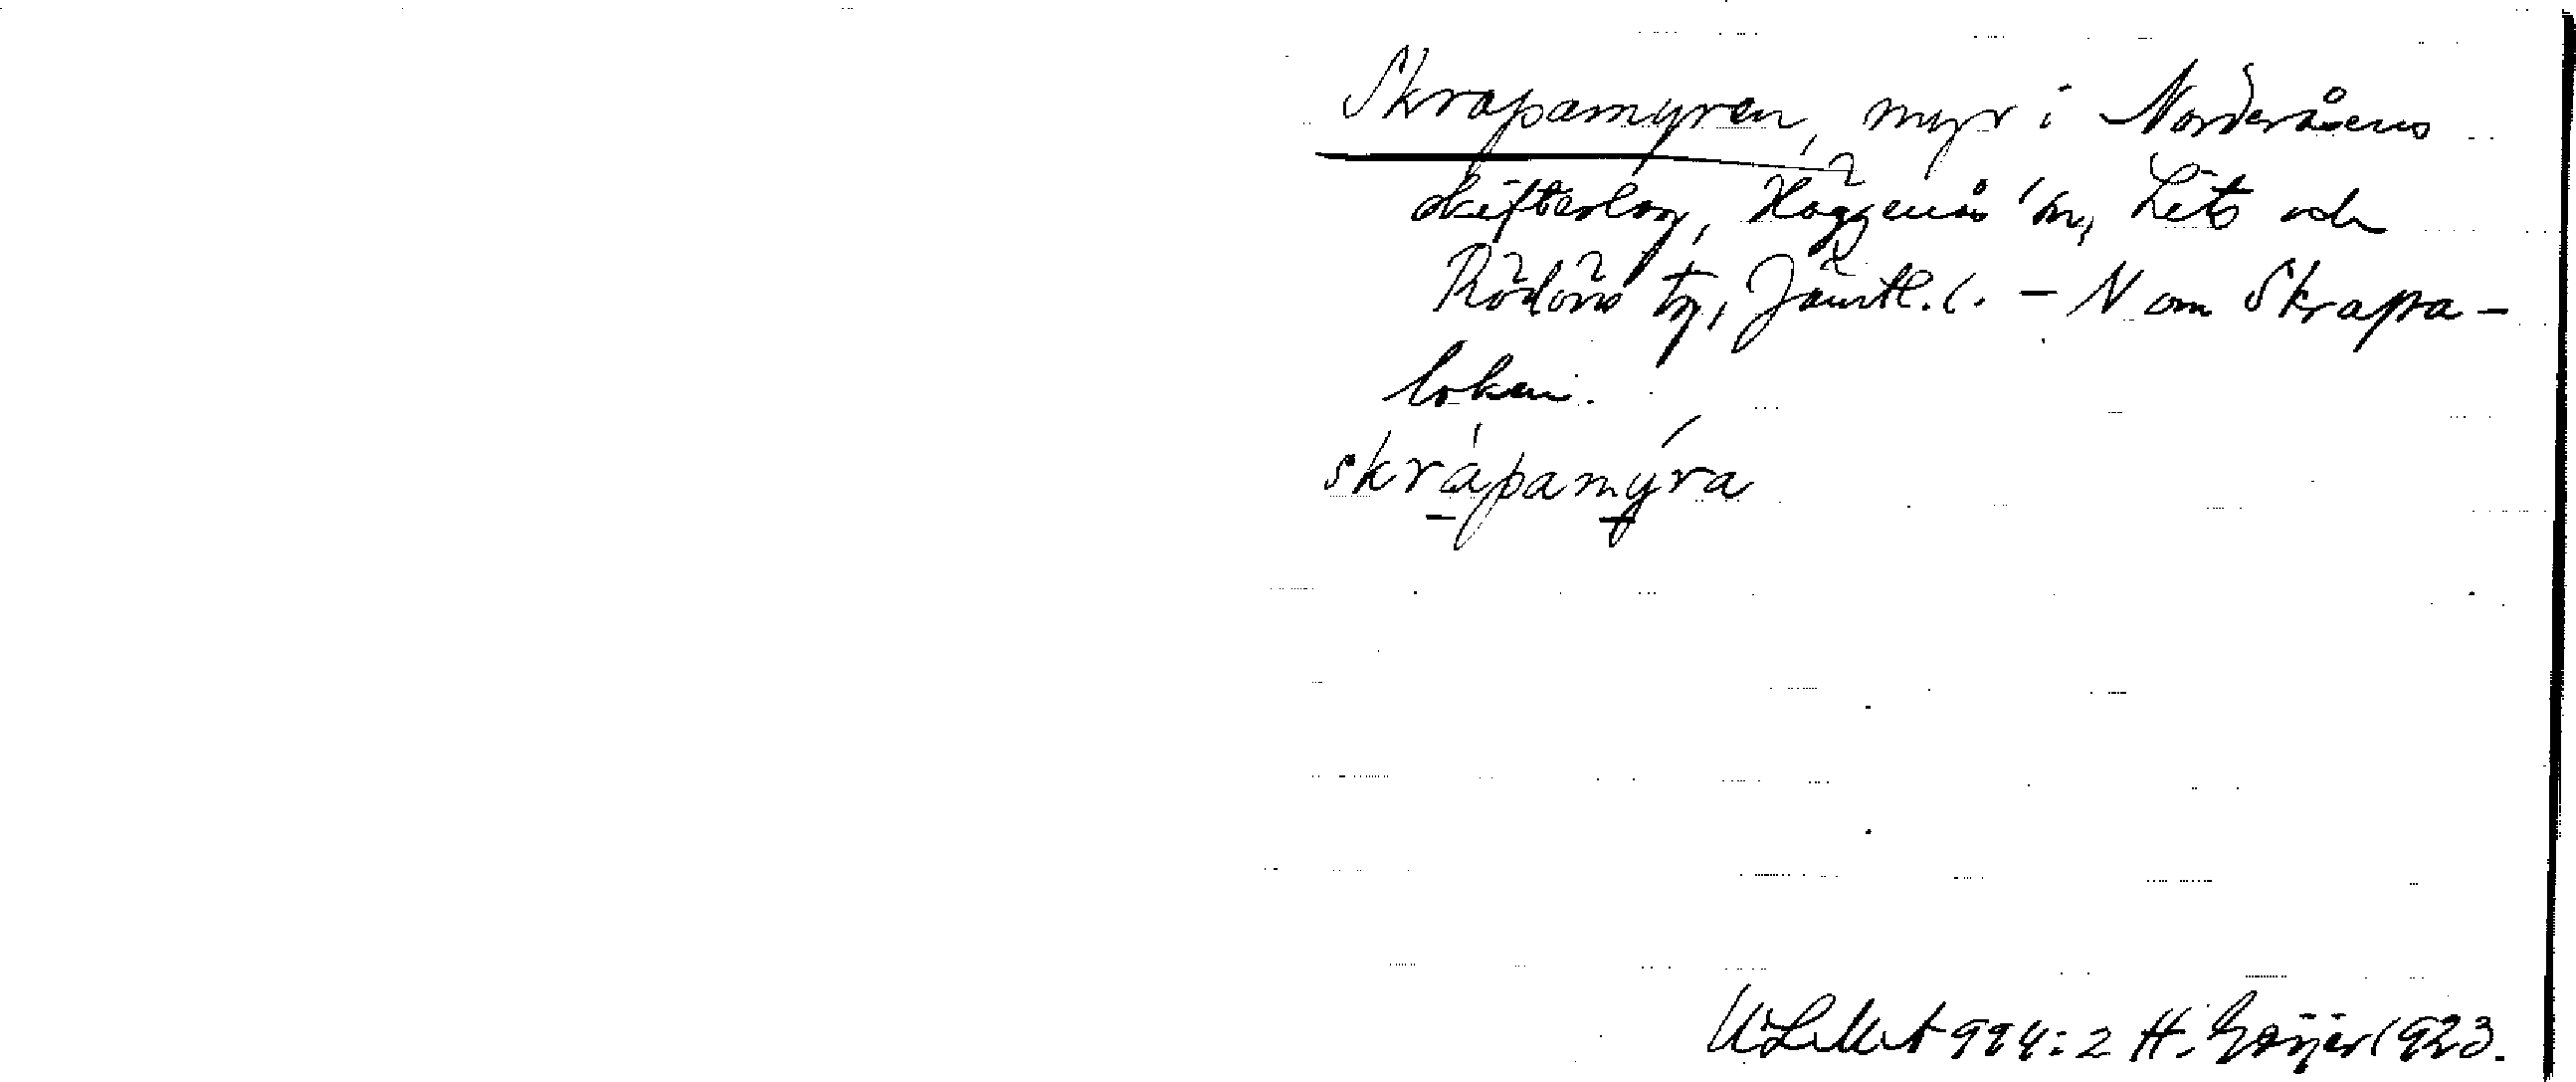 Skrapamyren, myr i Norderåsens
skifteslag, Häggenås sn, Lits och
Rödöns tg, Jämtl. l. - N om Skrapa-
loken.
skrápamýra
ULMA 994:2 H. Geijer 1923.